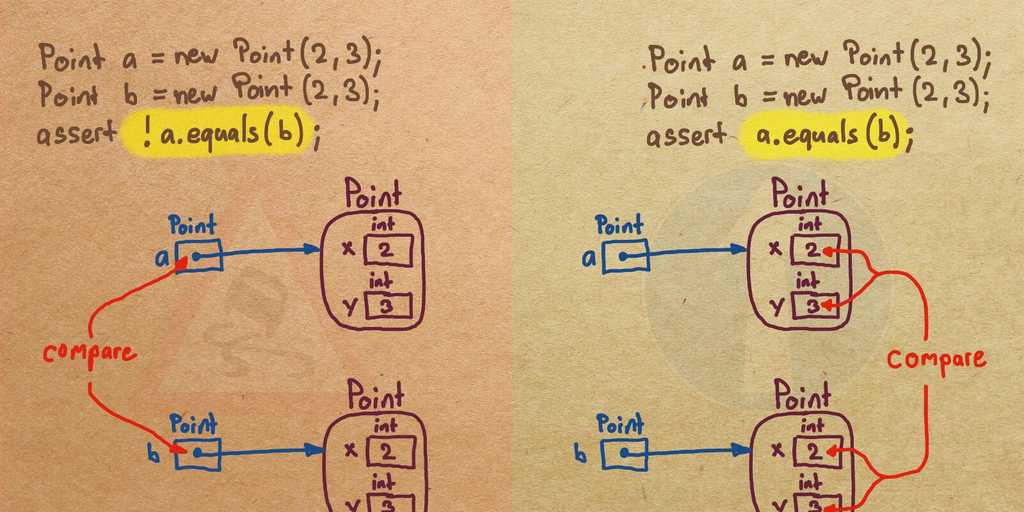 Point a = new Point(2,3);
Point b = new Point(2,3);
assert !a.equals(b);
Point
Point
int
a
x 2
int
y 3
compare
Point
Point
int
b
x 2
int
y 3
Point a = new Point(2,3);
Point b = new Point(2,3);
assert a.equals(b);
Point
Point
int
a
x 2
int
y 3
compare
Point
Point
int
b
x 2
int
y 3